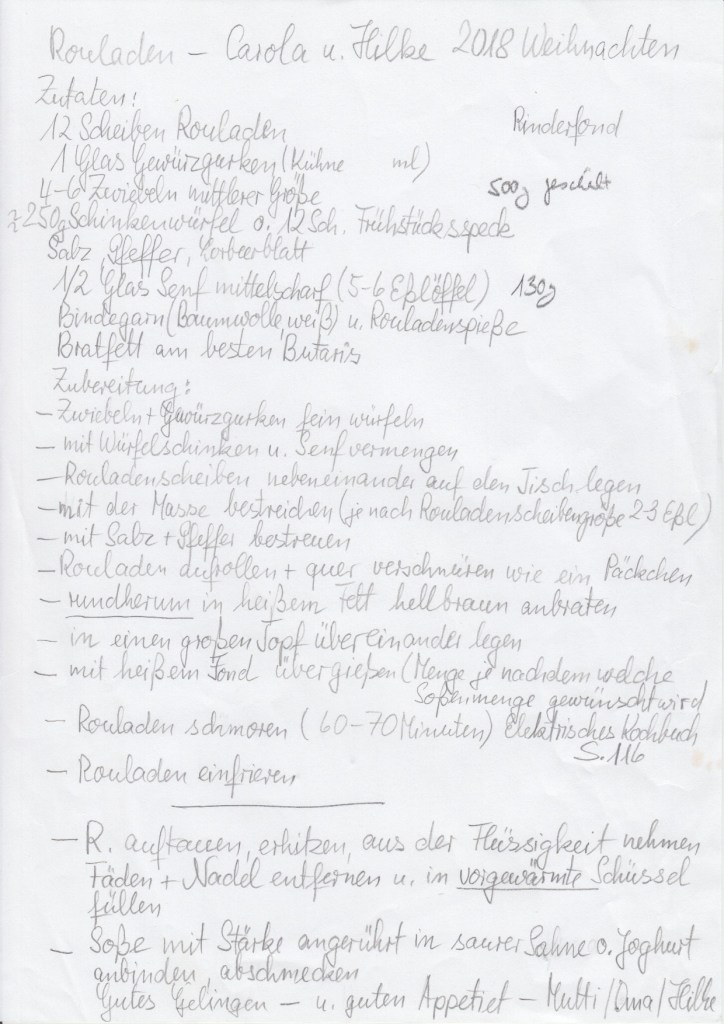 Rouladen – Carola u. Hilke 2018 Weihnachten
Zutaten:
12 Scheiben Rouladen Rinderfond
1 Glas Gewürzgurken (Kühne ml)
4-6 Zwiebeln mittlerer Größe 500g geschält
≈250g Schinkenwürfel o. 12 Sch. Frühstücksspeck
Salz, Pfeffer, Lorbeerblatt
1/2 Glas Senf mittelscharf (5-6 Eßlöffel) 130g
Bindegarn (Baumwolle, weiß) u. Rouladenspieße
Bratfett am besten Butaris
Zubereitung:
– Zwiebeln + Gewürzgurken fein würfeln
– mit Würfelschinken u. Senf vermengen
– Rouladenscheiben nebeneinander auf den Tisch legen
– mit der Masse bestreichen (je nach Rouladenscheibengröße 2-3 Eßl)
– mit Salz + Pfeffer bestreuen
– Rouladen aufrollen + quer verschnüren wie ein Päckchen
– rundherum in heißem Fett hellbraun anbraten
– in einen großen Topf übereinander legen
– mit heißem Fond übergießen (Menge je nachdem welche
Soßenmenge gewünscht wird
– Rouladen schmoren (60-70 Minuten) Elektrisches Kochbuch
S. 116
– Rouladen einfrieren
– R. auftauen, erhitzen, aus der Flüssigkeit nehmen
Fäden + Nadel entfernen u. in vorgewärmte Schüssel
füllen
– Soße mit Stärke angerührt in saurer Sahne o. Joghurt
anbinden, abschmecken
Gutes Gelingen – u. guten Appetiet – Mutti/Oma/Hilke